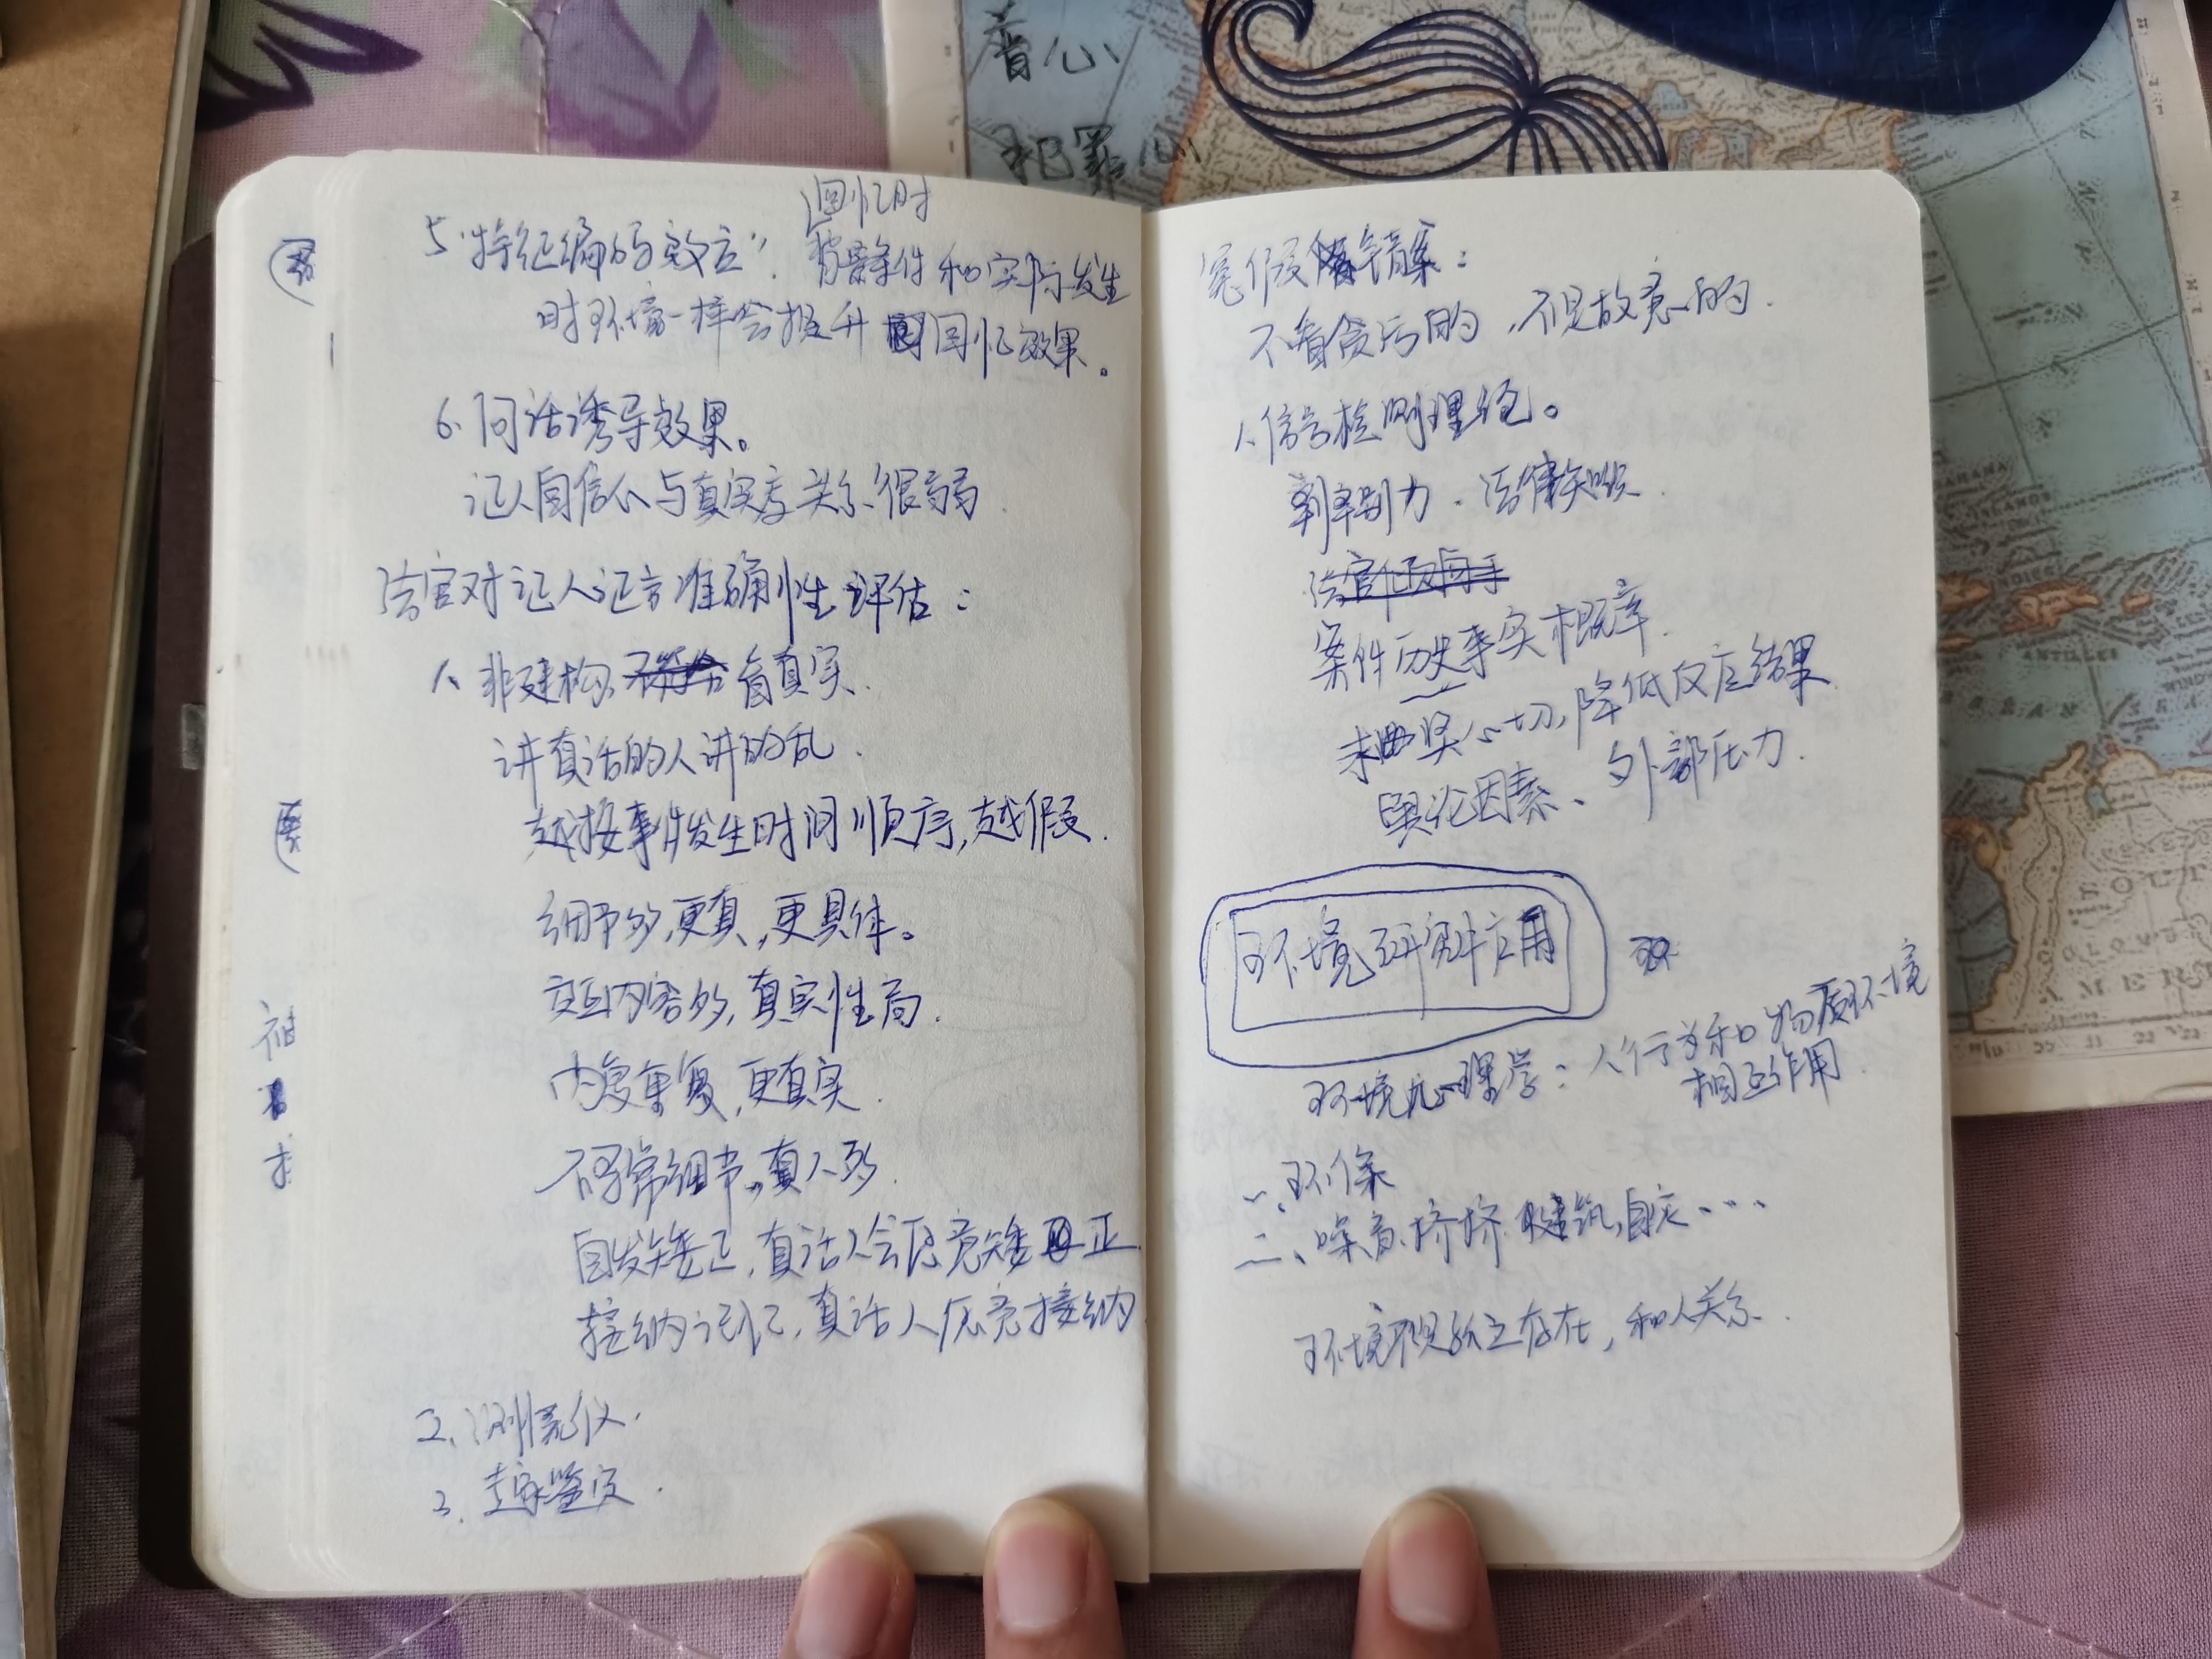 音心
犯罪心
回忆时
5."特征编码效应". 背景条件和实际发生
时环境一样会提升回忆效果。
6.问话诱导效果。
证人自信心与真实度关系很弱.
法官对证人证言准确性评估:
1.非建构、真实.
讲真话的人讲的乱.
越按事件发生时间顺序,越假.
细节多,更真,更具体。
交互内容多,真实性高.
内复重复,更真实.
不寻常细节,真人多.
自发矫正,真话人会愿意矫正
接纳记忆,真话人愿意接纳
2.测谎仪.
3. 鉴定.
冤假错案:
不看贪污的,不是故意的.
1.信号检测理论。
辨别力.法律知识.
案件历史事实概率.
一切,降低反应结果
舆论因素、外部压力.
环境研究应用 环
环境心理学:人行为和物质环境
相互作用.
一、环保
二、噪音.挤挤.建筑,自灾....
环境不是孤立存在,和人关系.
ANTILLES